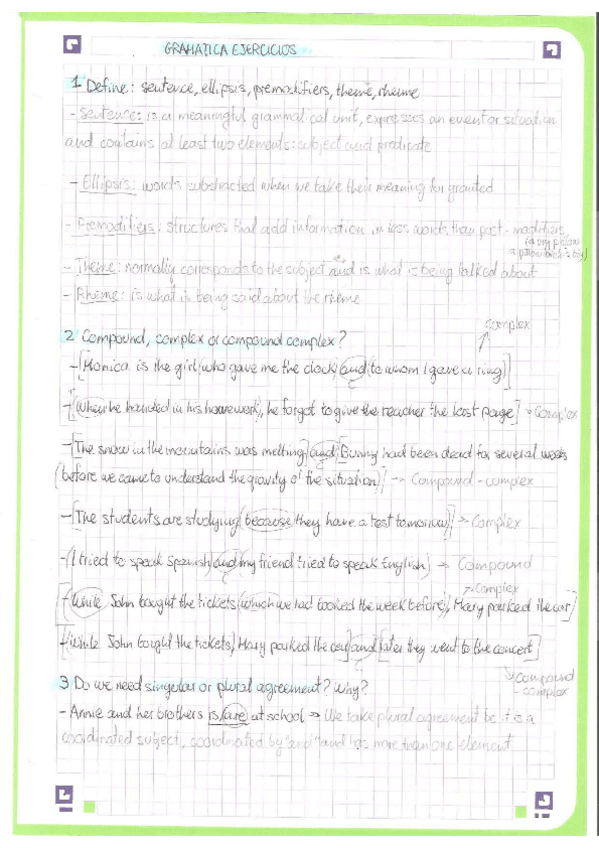 GRAMATICA EJERCICIOS
1 Define: sentence, ellipsis, premodifiers, theme, rheme
- Sentence: is a meaningful grammatical unit, expresses an event or situation
and contains at least two elements: subject and predicate
- Ellipsis: words substracted when we take their meaning for granted
- Premodifiers: structures that add information in less words than post-modifiers
- Theme: normally corresponds to the subject and is what is being talked about
- Rheme: is what is being said about the rheme
2 Compound, complex or compound complex?
complex
- [Monica is the girl (who gave me the clock) and (to whom I gave a ring)]
- [(When he handed in his homework), he forgot to give the teacher the last page] → Complex
- [The snow in the mountains was melting] and [Bunny had been dead for several weeks
(before we came to understand the gravity of the situation)] → Compound-complex
- [The students are studying (because they have a test tomorrow)] → Complex
- (I tried to speak Spanish) and (my friend tried to speak English) → Compound
→ Complex
[(While John bought the tickets (which we had booked the week before), Mary parked the car]
- [(While John bought the tickets) Mary parked the car] and [later they went to the concert]
→ Compound
- complex
3 Do we need singular or plural agreement? Why?
- Annie and her brothers is/are at school → We take plural agreement bc it is a
coordinated subject, coordinated by "and" and has more than one element